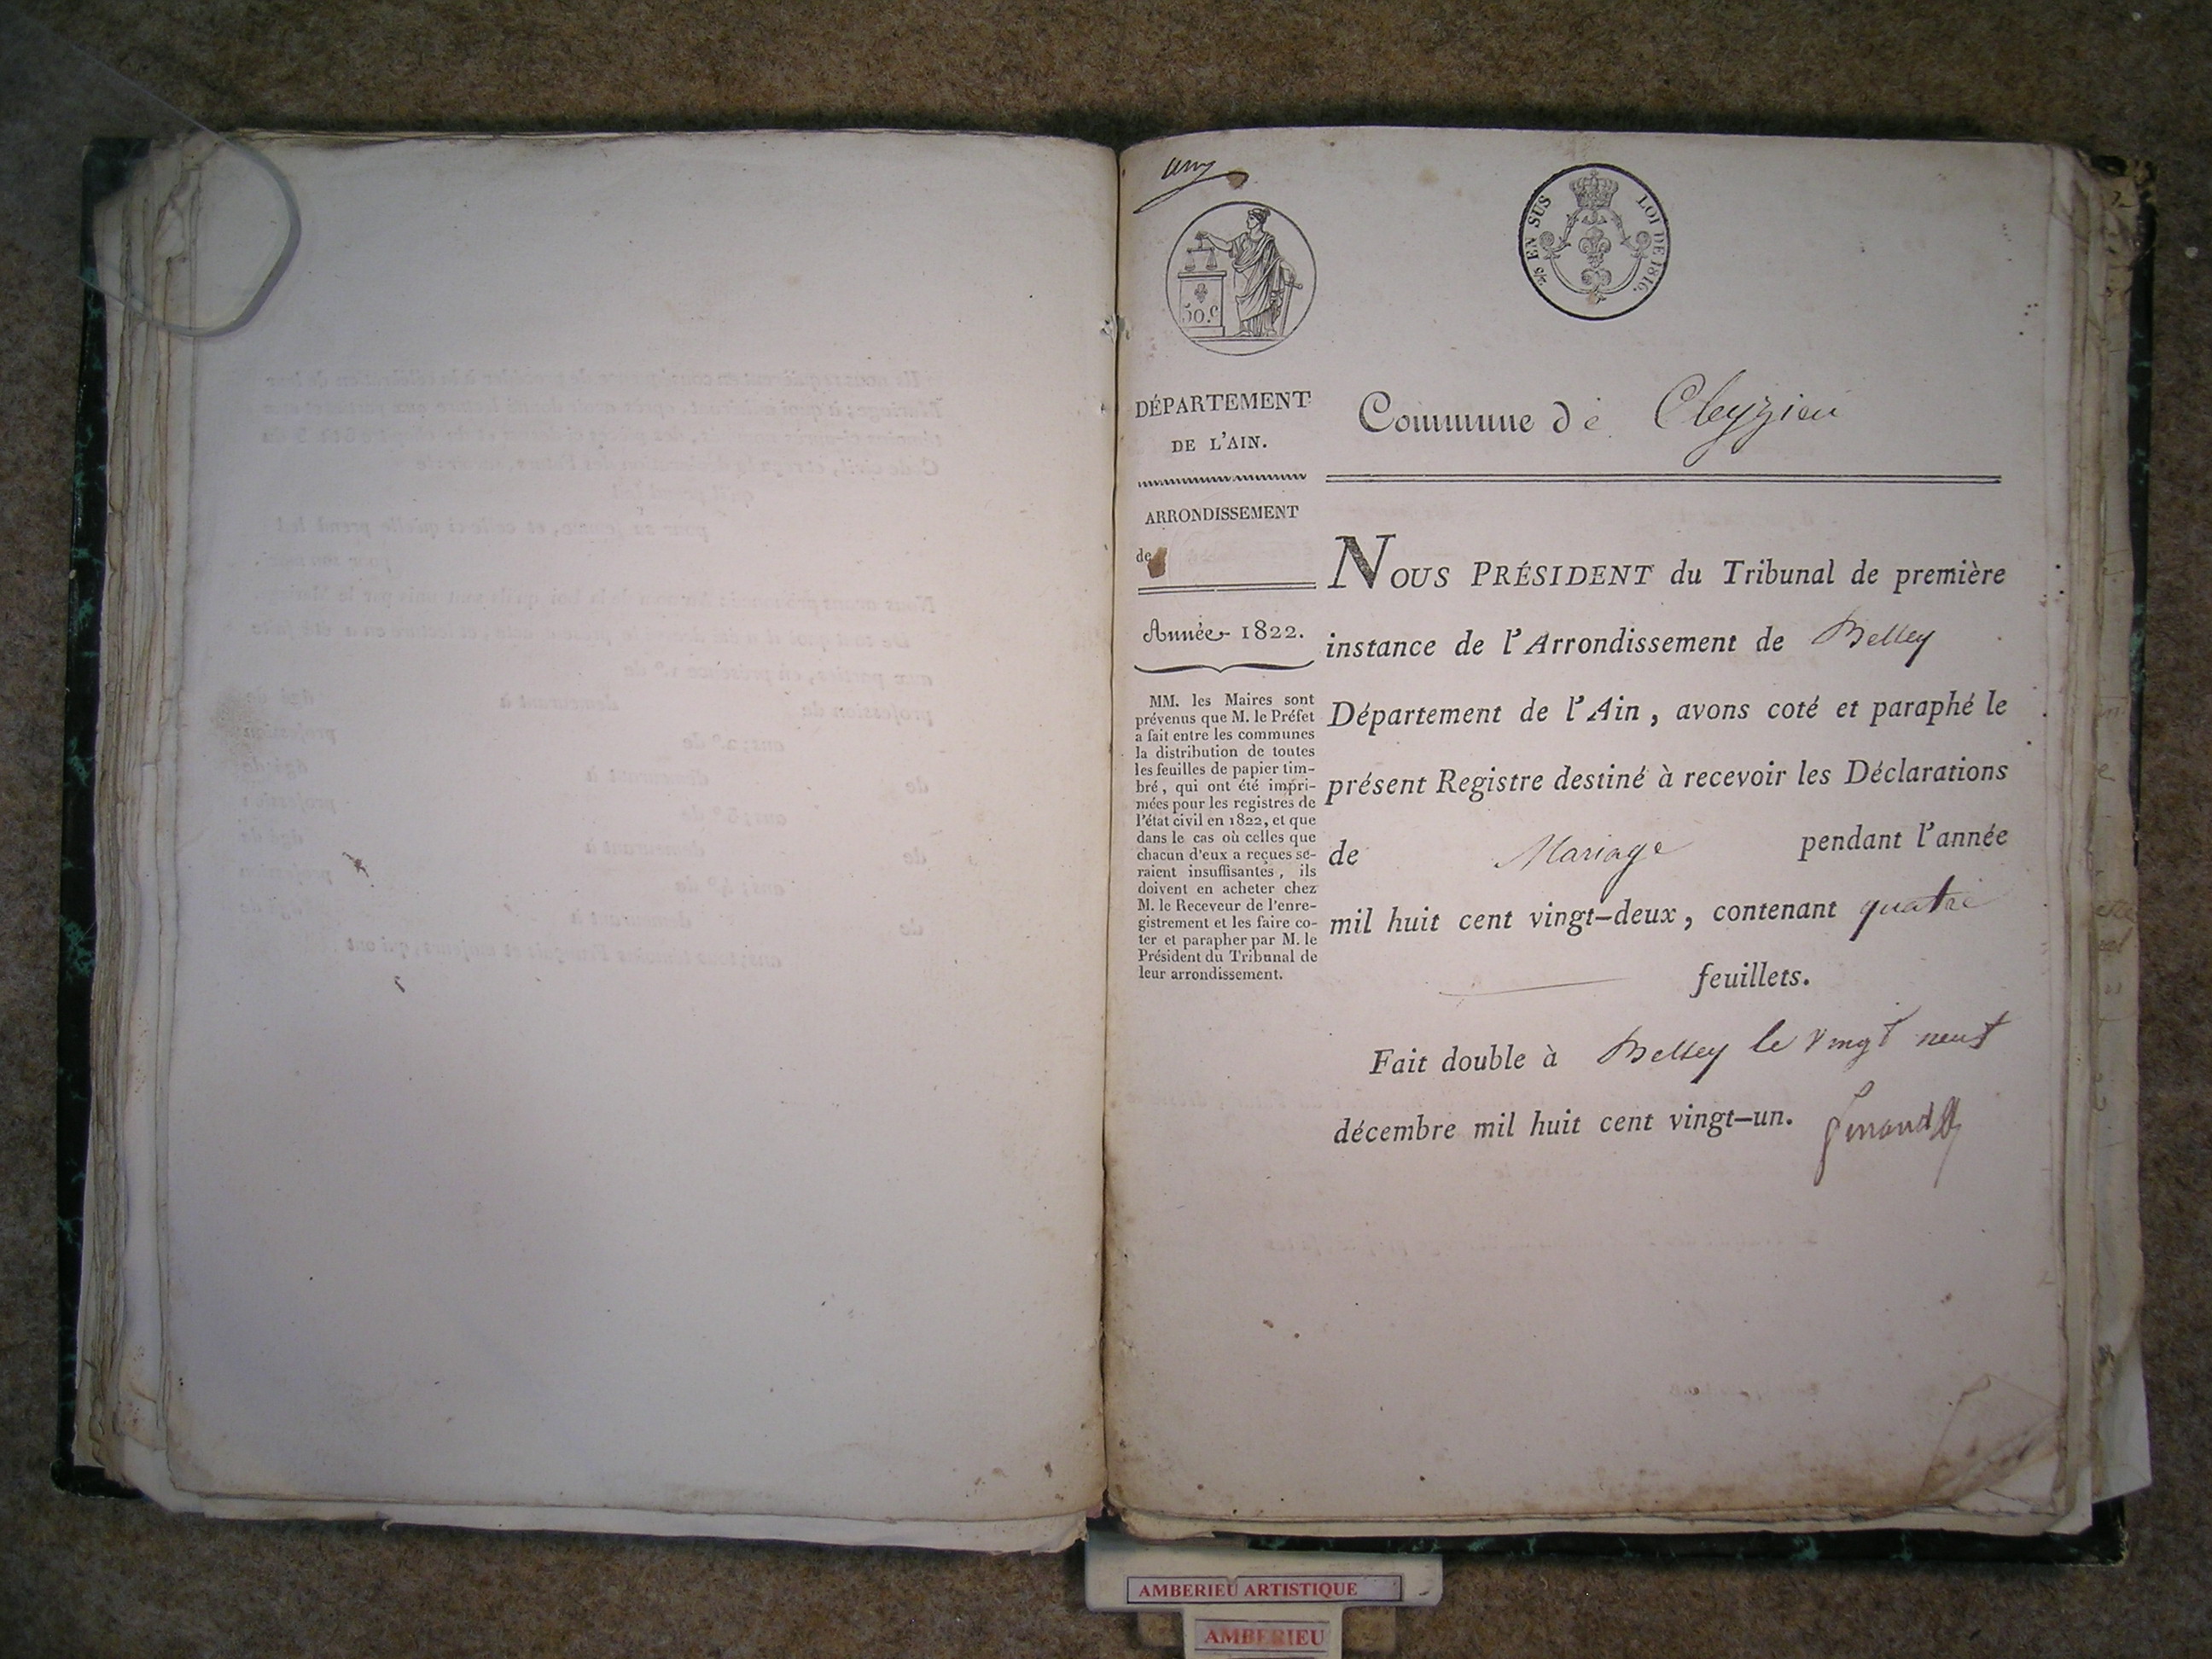 50.c
5/c EN SUS LOI DE 1816.
DÉPARTEMENT
DE L'AIN.
ARRONDISSEMENT
de
Année 1822.
MM. les Maires sont
prévenus que M. le Préfet
a fait entre les communes
la distribution de toutes
les feuilles de papier tim-
bré, qui ont été impri-
mées pour les registres de
l'état civil en 1822, et que
dans le cas où celles que
chacun d'eux a reçues se-
raient insuffisantes, ils
doivent en acheter chez
M. le Receveur de l'enre-
gistrement et les faire co-
ter et parapher par M. le
Président du Tribunal de
leur arrondissement.
Commune de Cleyzieu
NOUS PRÉSIDENT du Tribunal de première
instance de l'Arrondissement de Belley
Département de l'Ain, avons coté et paraphé le
présent Registre destiné à recevoir les Déclarations
de Mariage pendant l'année
mil huit cent vingt-deux, contenant quatre
feuillets.
Fait double à Belley le vingt neuf
décembre mil huit cent vingt-un.
AMBERIEU ARTISTIQUE
AMBERIEU